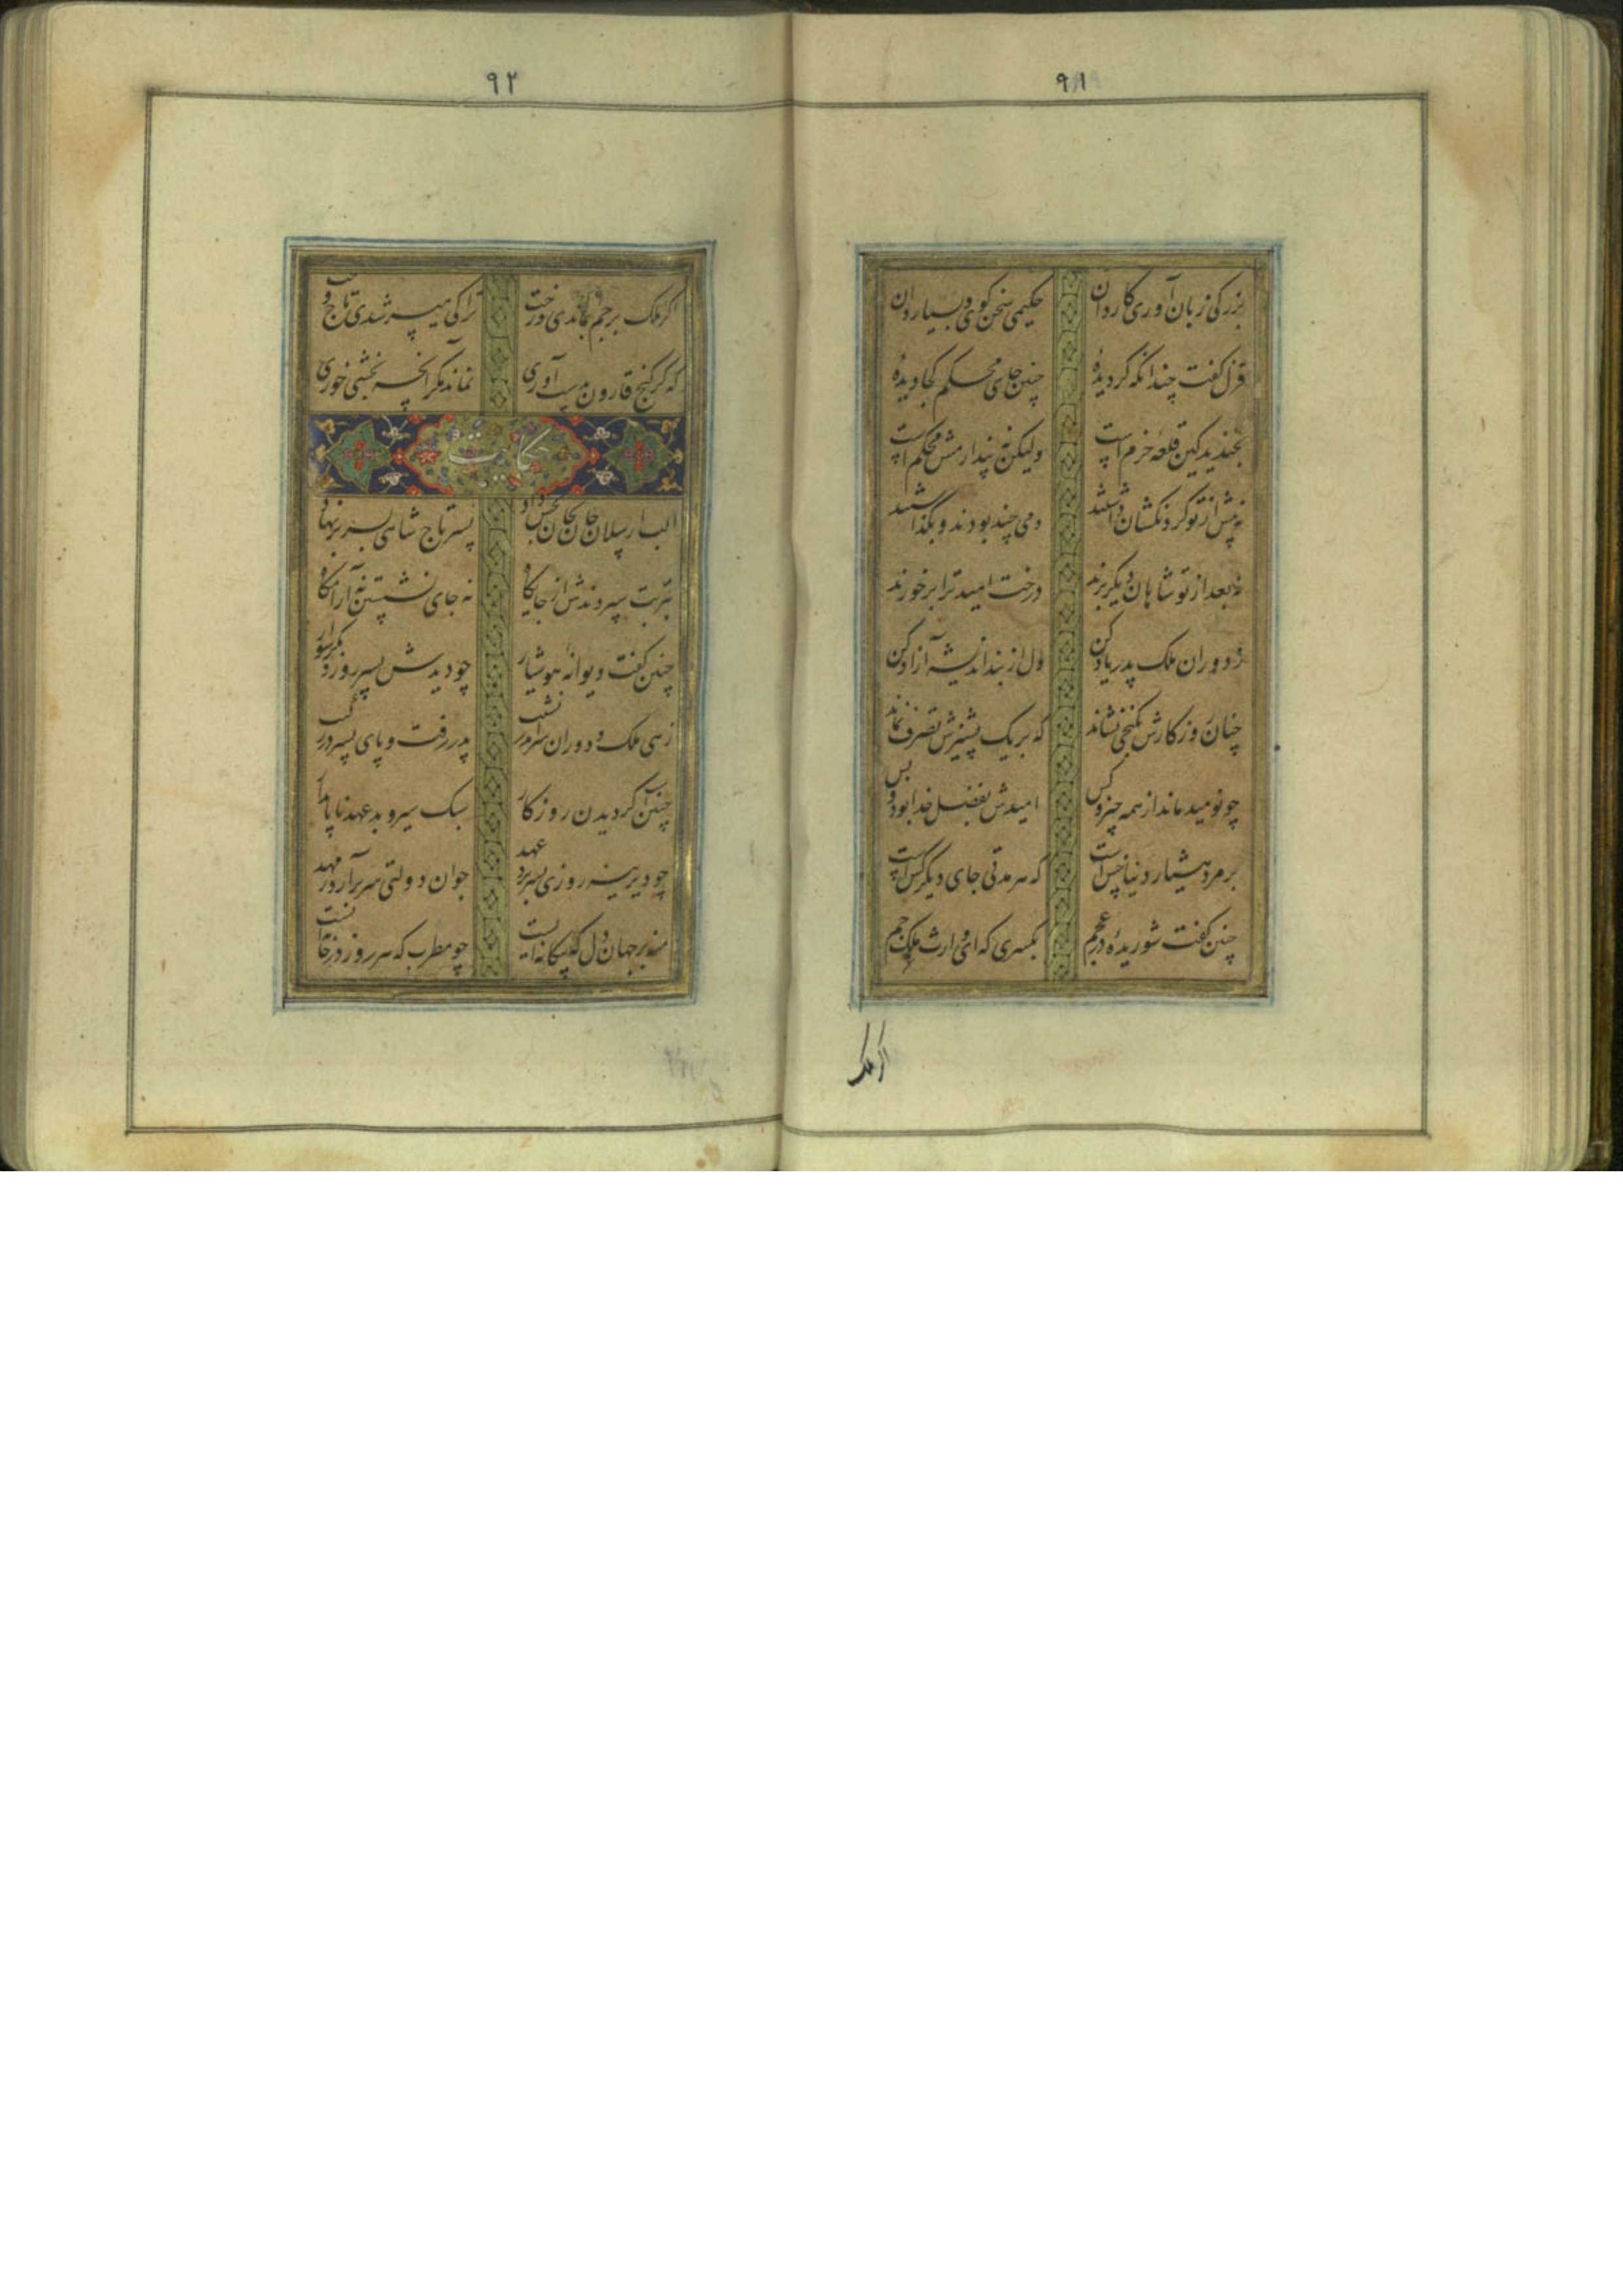 ۹۱
بزرگی زبان آوری کاردان حکیمی سخن کوی بسیار دان
قزل کفت چندانکه کردیدهٔ چنین جای محکم کجا دیدهٔ
بخندید کین قلعه خرم است ولیکن نپندارمش محکم است
نه پیش از تو کردنکشان داشتند دمی چند بودند و بگذاشتند
نه بعد از تو شاهان دیکر برند درخت امید ترا بر خورند
ز دوران ملک پدر یاد کن دل از بند اندیشه آزاد کن
چنان روزکارش بکنجی نشاند که بر یک پشیزش تصرف نماند
چو نومید ماند از همه چیز و کس امیدش بفضل خدا بود و بس
بر مرد هشیار دنیا خس است که هر مدتی جای دیکر کس است
چنین کفت شوریدهٔ در عجم بکسری که ای وارث ملک جم
اکر ملک
۹۲
اکر ملک بر جم بماندی و رخت ترا کی میسر شدی تاج و تخت
که کر کنج قارون بدست آوری نماند مکر آنچه بخشی خوری
حکایت
الب ارسلان جان بجان بخش داد پسر تاج شاهی بسر بر نهاد
بتربت سپردندش از جایکاه نه جای نشستن نه آرامکاه
چنین کفت دیوانه هوشیار چو دیدش پسر روز دیکر سوار
زهی ملک و دوران سر در نشیب پدر رفت و پای پسر در رکیب
چنین آ کردیدن روزکار سبک سیر و بد عهد ناپایدار
چو دیرینه روزی بسر برد عهد جوان دولتی سر برآرد ز مهد
منه بر جهان دل که بیکانه ایست چو مطرب که هر روز در خانه ایست